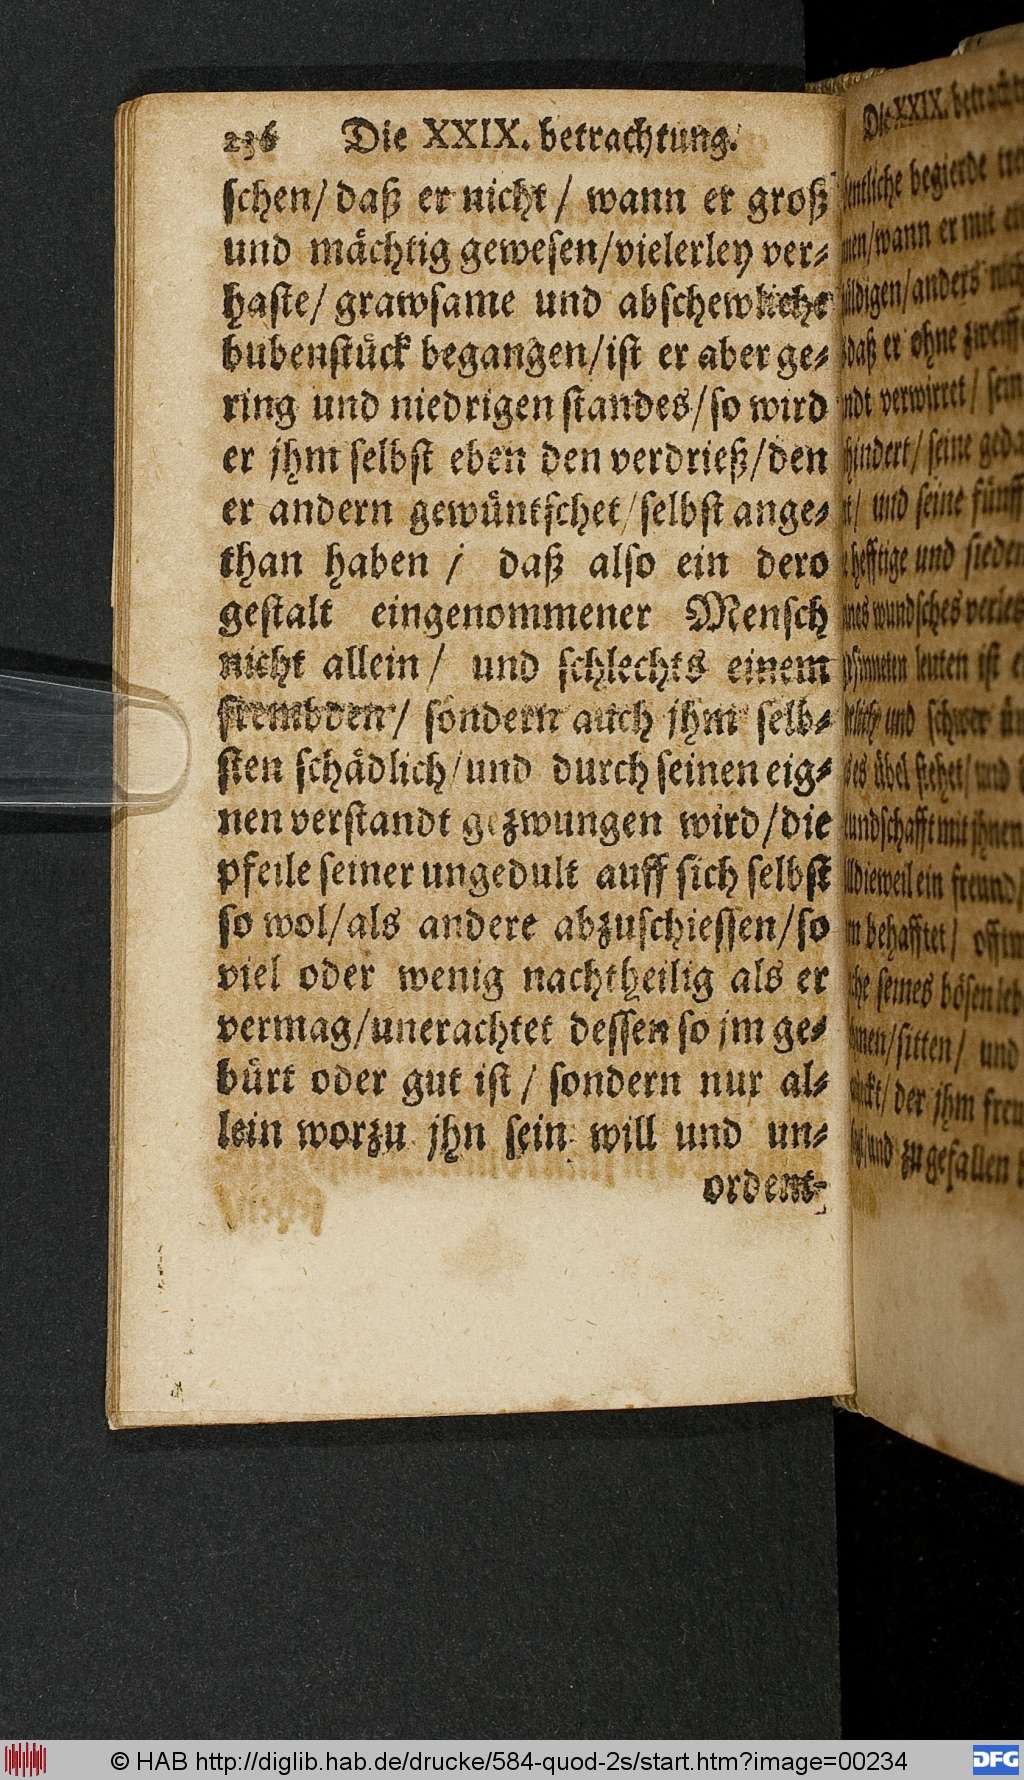 236 Die XXIX. betrachtung.
schen/ daß er nicht / wann er groß
und mächtig gewesen/vielerley ver-
haste/ grawsame und abschewliche
bubenstück begangen/ist er aber ge-
ring und niedrigen standes/so wird
er jhm selbst eben den verdrieß/den
er andern gewüntschet/selbst ange-
than haben / daß also ein dero
gestalt eingenommener Mensch
nicht allein / und schlechts einem
frembden / sondern auch jhm selb-
sten schädlich/und durch seinen eig-
nen verstandt gezwungen wird/die
pfeile seiner ungedult auff sich selbst
so wol/als andere abzuschiessen/so
viel oder wenig nachtheilig als er
vermag/unerachtet dessen so jm ge-
bürt oder gut ist / sondern nur al-
lein worzu jhn sein will und un-
ordent-
Die XXIX.
begierde
/wann er mit
/anders
daß er ohne
verwirret / sein
/ seine
/ und seine fünff
hefftige und
wundsches
leuten ist
und schwer
übel stehet/ und
mit jhnen
dieweil ein freund/
behafftet /
seines bösen
/sitten / und
/ der jhm
und zu gefallen
© HAB http://diglib.hab.de/drucke/584-quod-2s/start.htm?image=00234
DFG